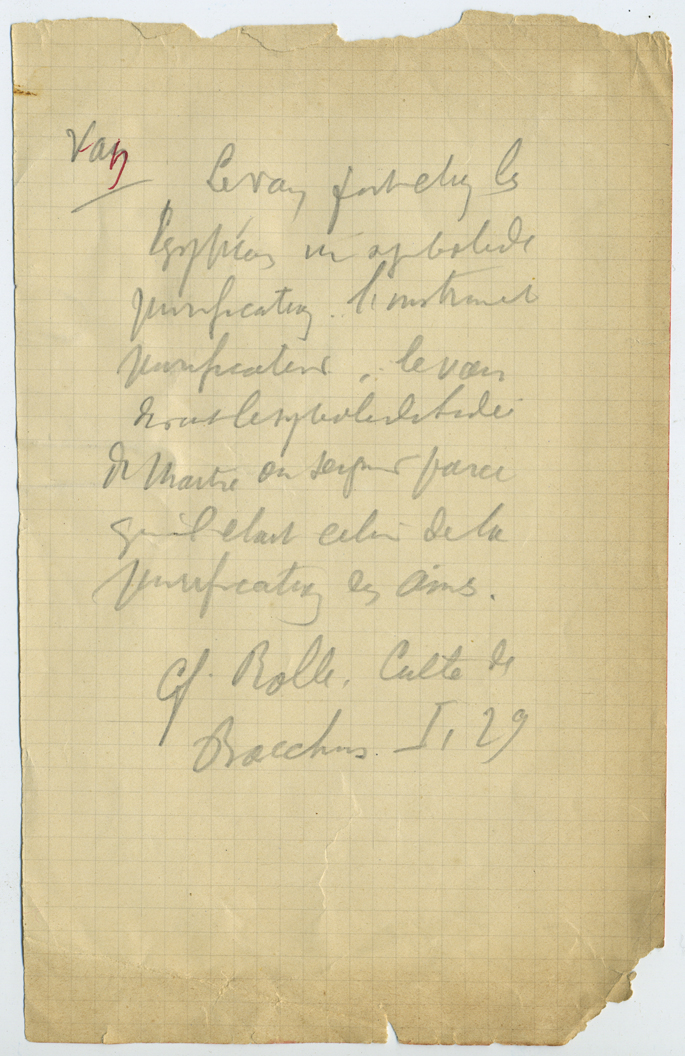 Van
Le van fut chez les
Egyptiens un symbole de
purification. l'instrument
purificateur, le van
devint le symbole de l'idée
de Maître ou seigneur parce
qu'il était celui de la
purification des âmes.
Cf. Rolle. Culte de
Bacchus. I, 29